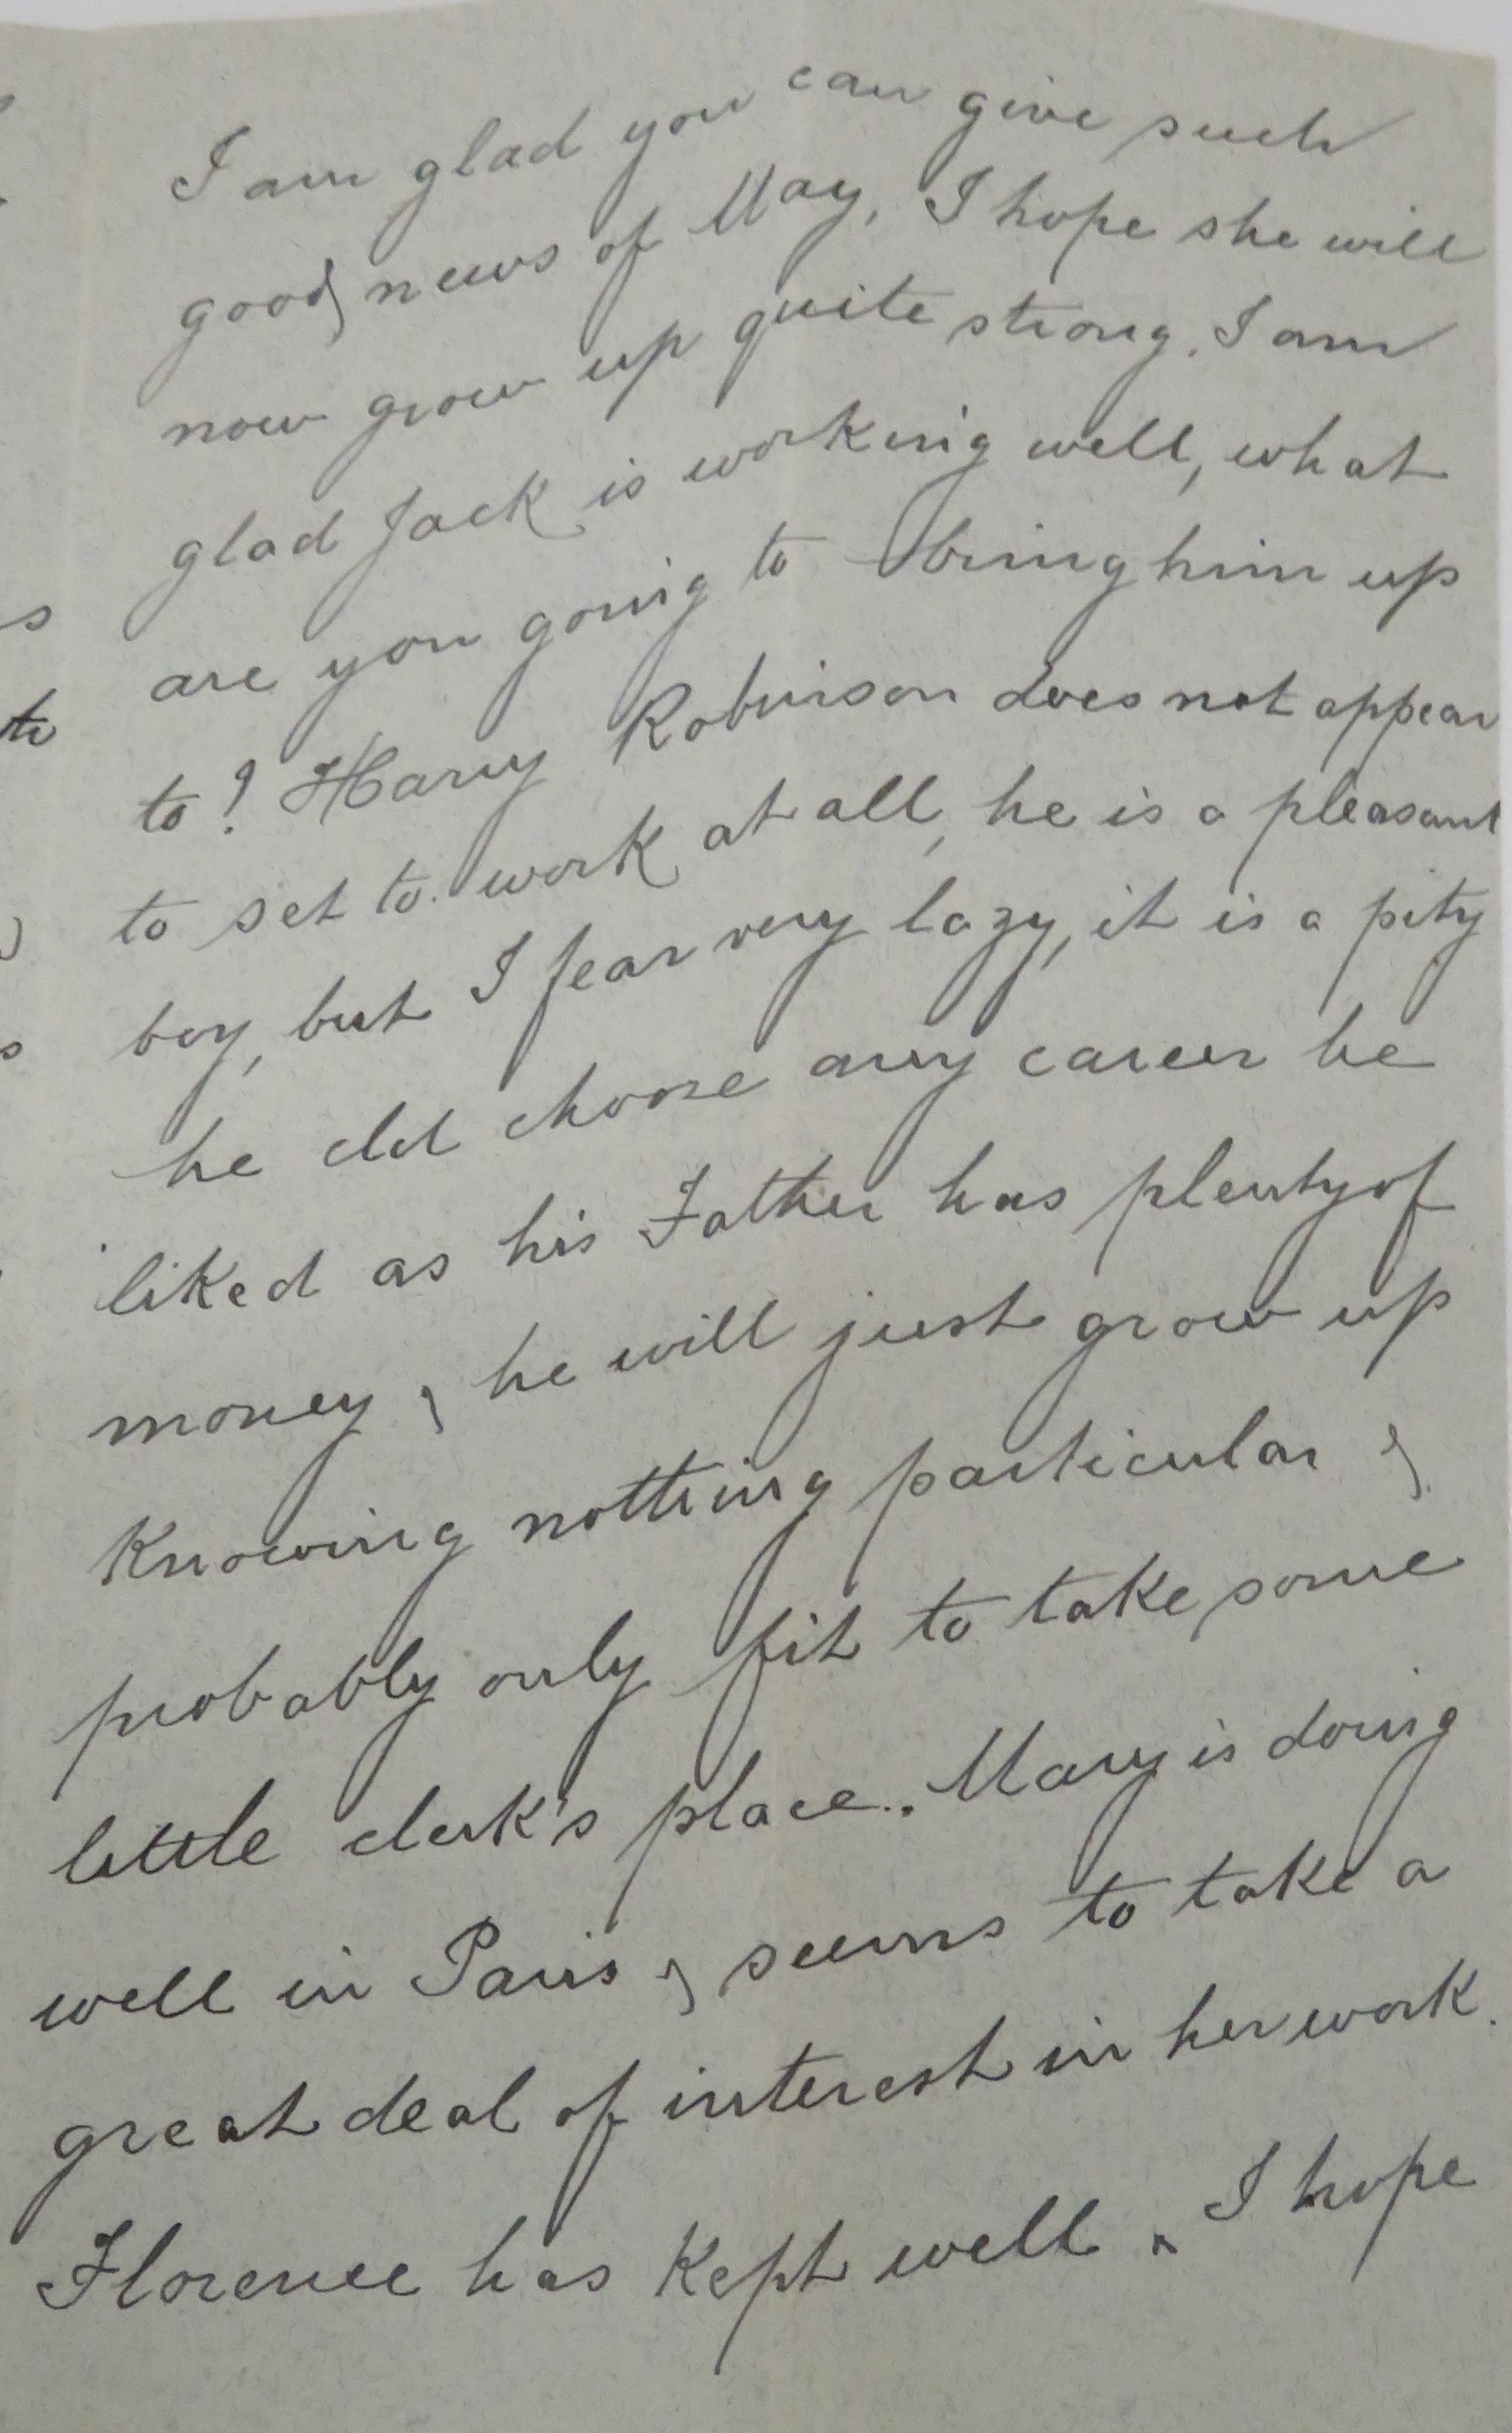 I am glad you can give such
good news of May, I hope she will
now grow up quite strong. I am
glad Jack is working well, what
are you going to bring him up
to? Harry Robinson does not appear
to set to work at all, he is a pleasant
boy, but I fear very lazy, it is a pity
he cld choose any career he
liked as his Father has plenty of
money & he will just grow up
knowing nothing particular &
probably only fit to take some
little clerk's place. Mary is doing
well in Paris & seems to take a
great deal of interest in her work.
Florence has kept well. I hope